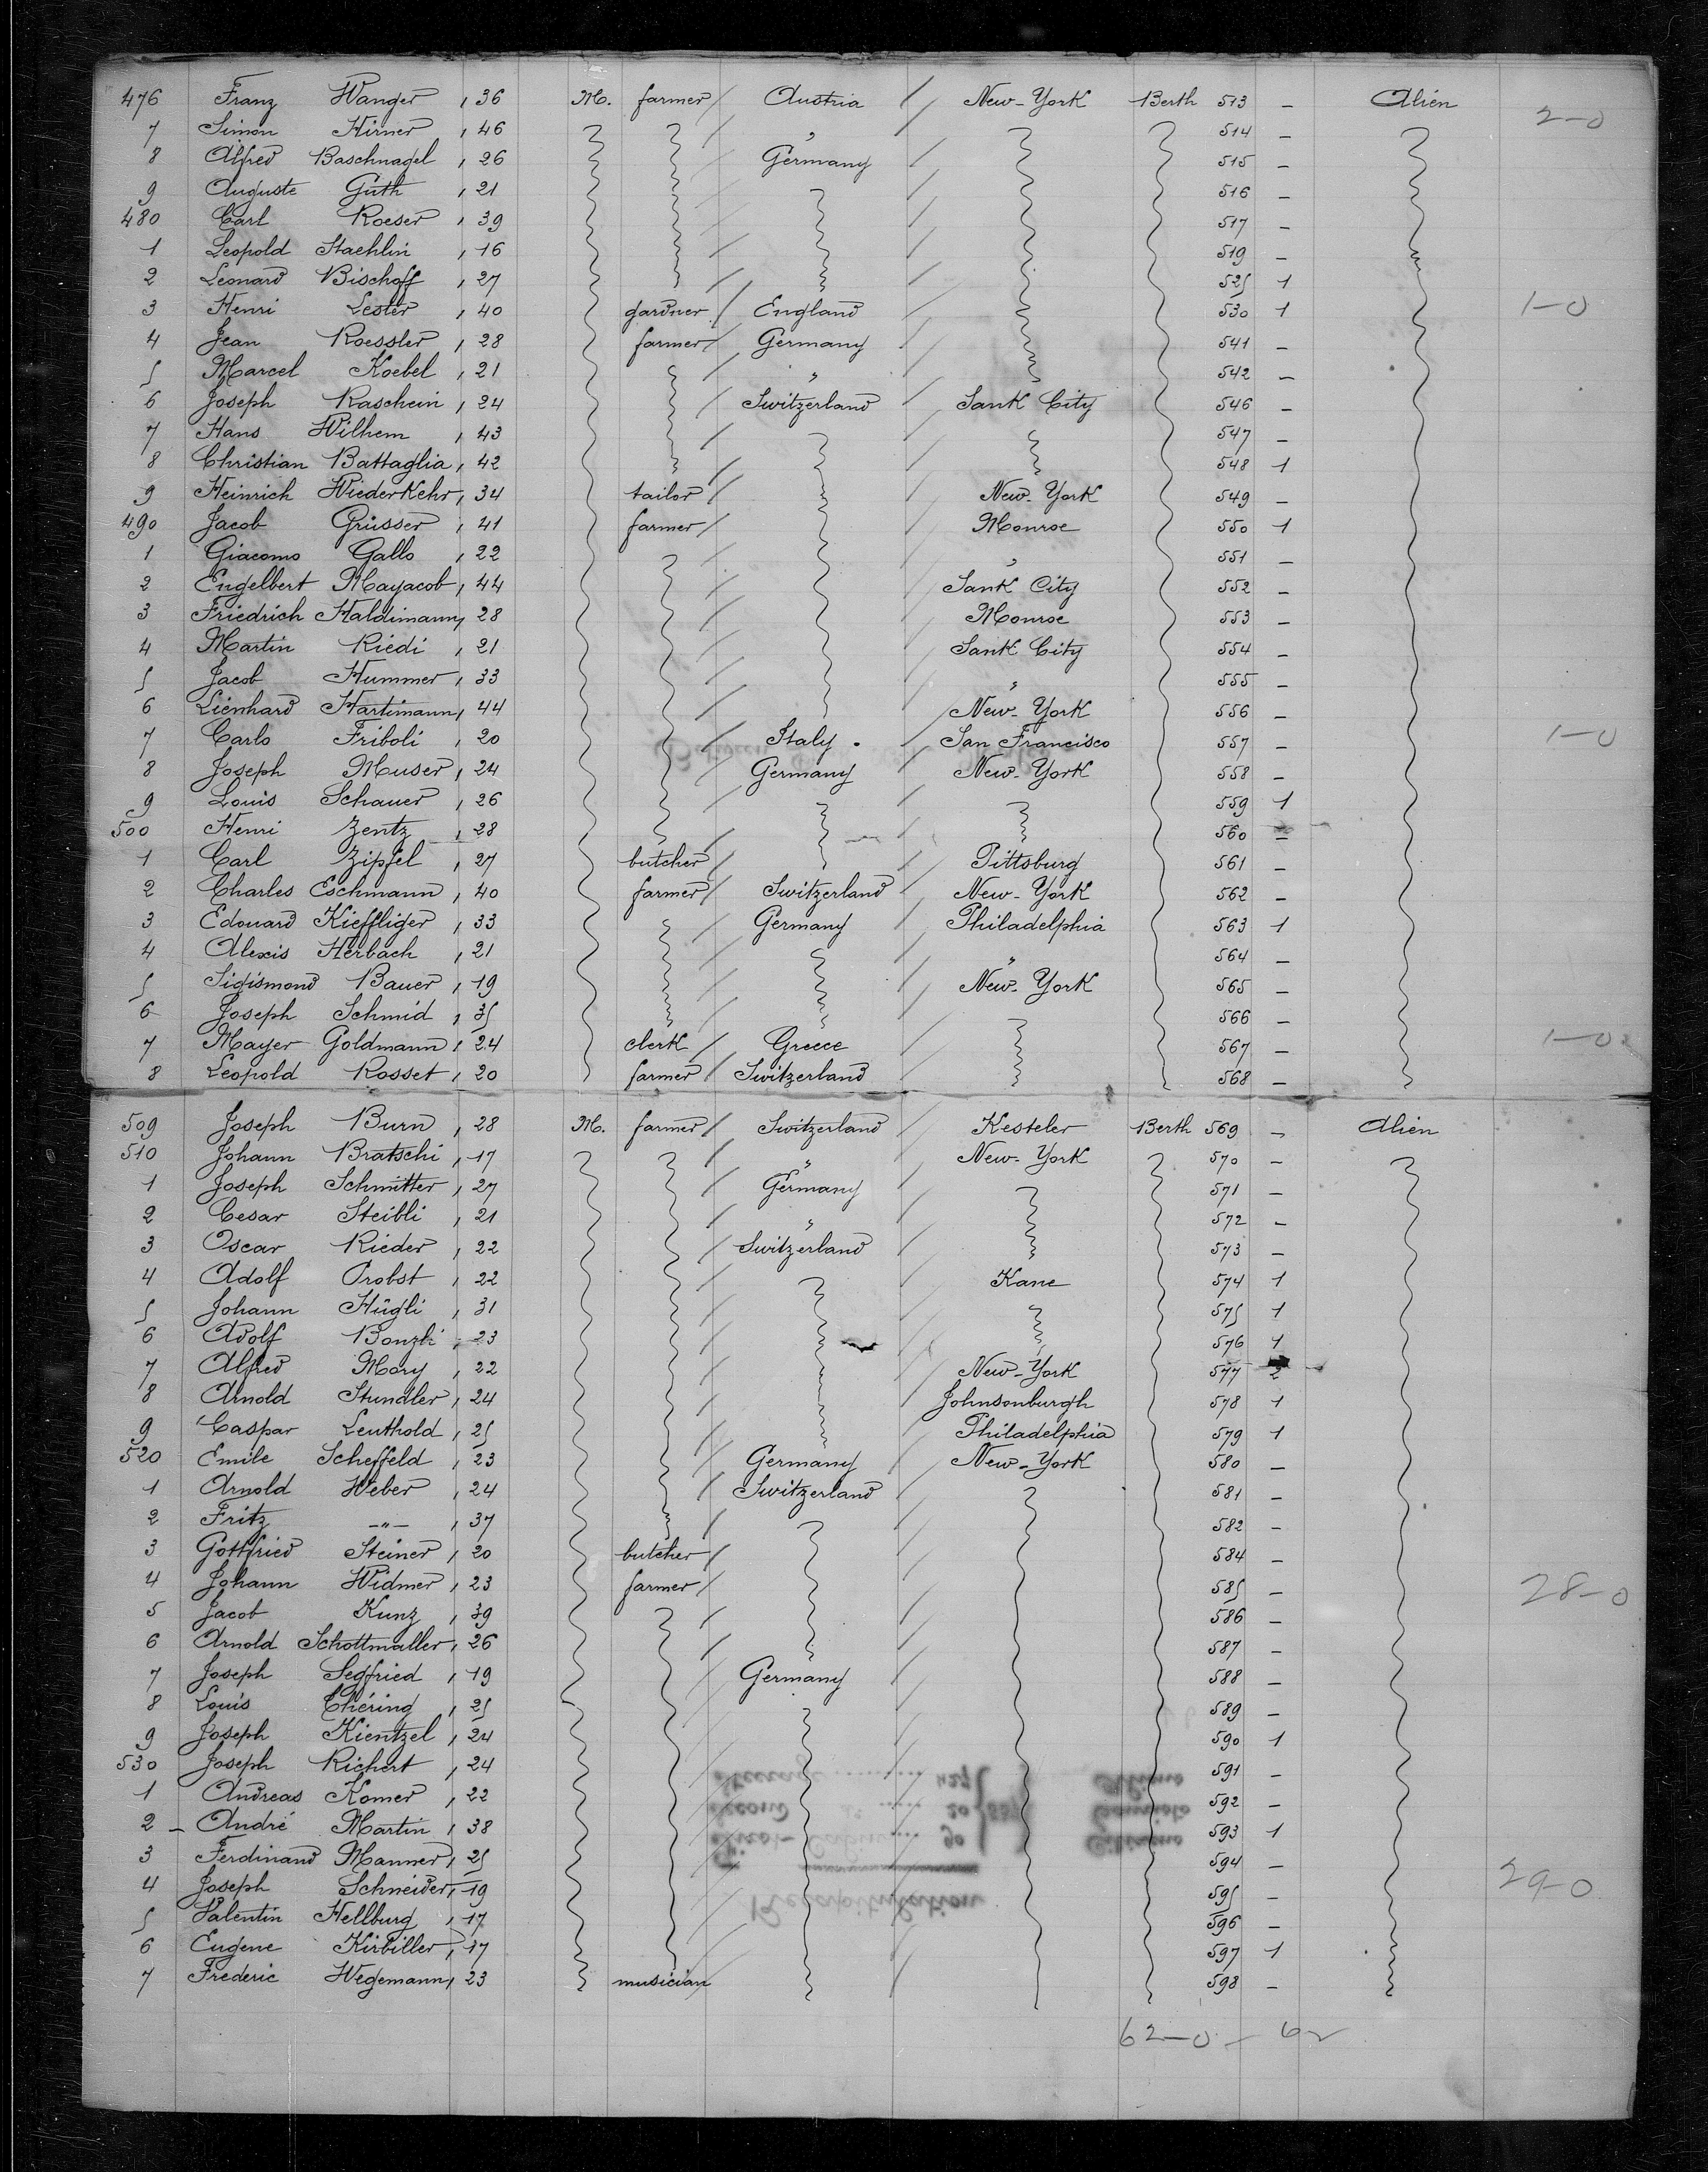 476 Franz Wanger , 36 M. farmer / Austria / New-York Berth 513 - Alien 2-0
7 Simon Hirner , 46 / " / 514 -
8 Alfred Baschnagel , 26 / Germany / 515 -
9 Auguste Güth , 21 516 -
480 Carl Roeser , 39 517 -
1 Leopold Staehlin , 16 519 -
2 Leonard Bischoff , 27 525 1
3 Henri Lester , 40 gardner / England / 530 1 1-0
4 Jean Roessler , 28 farmer / Germany / 541 -
5 Marcel Koebel , 21 / " / 542 -
6 Joseph Raschein , 24 / Switzerland / Sank City 546 -
7 Hans Wilhem , 43 547 -
8 Christian Battaglia , 42 548 1
9 Heinrich Wiederkehr , 34 tailor / New-York 549 -
490 Jacob Grüsser , 41 farmer / Monroe 550 1
1 Giacomo Gallo , 22 " 551 -
2 Engelbert Mayacob , 44 Sank City 552 -
3 Friedrich Haldimann , 28 Monroe 553 -
4 Martin Riedi , 21 Sank City 554 -
5 Jacob Hummer , 33 " 555 -
6 Lienhard Hartimann , 44 New-York 556 -
7 Carlo Friboli , 20 / Italy . / San Francisco 557 - 1-0
8 Joseph Muser , 24 / Germany / New-York 558 -
9 Louis Schauer , 26 559 1
500 Henri Zentz , 28 560 -
1 Carl Zipfel , 27 butcher / Pittsburg 561 -
2 Charles Eschmann , 40 farmer / Switzerland / New-York 562 -
3 Edouard Kieffliger , 33 / Germany / Philadelphia 563 1
4 Alexis Herbach , 21 " 564 -
5 Sigismond Bauer , 19 New-York 565 -
6 Joseph Schmid , 35 566 -
7 Mayer Goldmann , 24 clerk / Greece / 567 - 1-0
8 Leopold Rosset , 20 farmer / Switzerland / 568 -
509 Joseph Burn , 28 M. farmer / Switzerland / Kesteler Berth 569 - Alien
510 Johann Bratschi , 17 / " / New-York 570 -
1 Joseph Schmitter , 27 / Germany / 571 -
2 Cesar Steibli , 21 / " / 572 -
3 Oscar Rieder , 22 / Switzerland / 573 -
4 Adolf Probst , 22 Kane 574 1
5 Johann Hügli , 31 575 1
6 Adolf Bonzli , 23 576 1
7 Alfred Mory , 22 New-York 577 2
8 Arnold Stundler , 24 Johnsonburgh 578 1
9 Caspar Leuthold , 25 Philadelphia 579 1
520 Emile Scheffeld , 23 / Germany / New-York 580 -
1 Arnold Weber , 24 / Switzerland / 581 -
2 Fritz -"- , 37 582 -
3 Gottfried Steiner , 20 butcher / 584 -
4 Johann Widmer , 23 farmer / 585 - 28-0
5 Jacob Kunz , 39 586 -
6 Arnold Schottmaller , 26 587 -
7 Joseph Segfried , 19 / Germany / 588 -
8 Louis Théring , 25 589 -
9 Joseph Kientzel , 24 590 1
530 Joseph Richert , 24 591 -
1 Andreas Komer , 22 592 -
2 - André Martin , 38 593 1
3 Ferdinand Manner , 25 594 -
4 Joseph Schneider , 19 595 - 29-0
5 Valentin Hellburg , 17 596 -
6 Eugene Kirbiller , 17 597 1
7 Frederic Wegemann , 23 musician 598 -
62-0 - 62